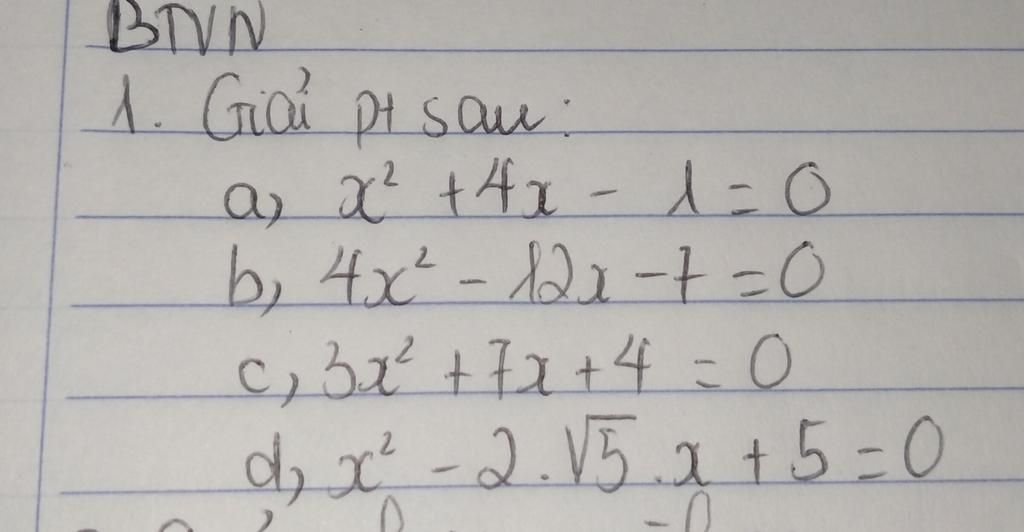 BTVN
1. Giải pt sau:
a, x² + 4x - 1 = 0
b, 4x² - 12x - 7 = 0
c, 3x² + 7x + 4 = 0
d, x² - 2.√5.x + 5 = 0